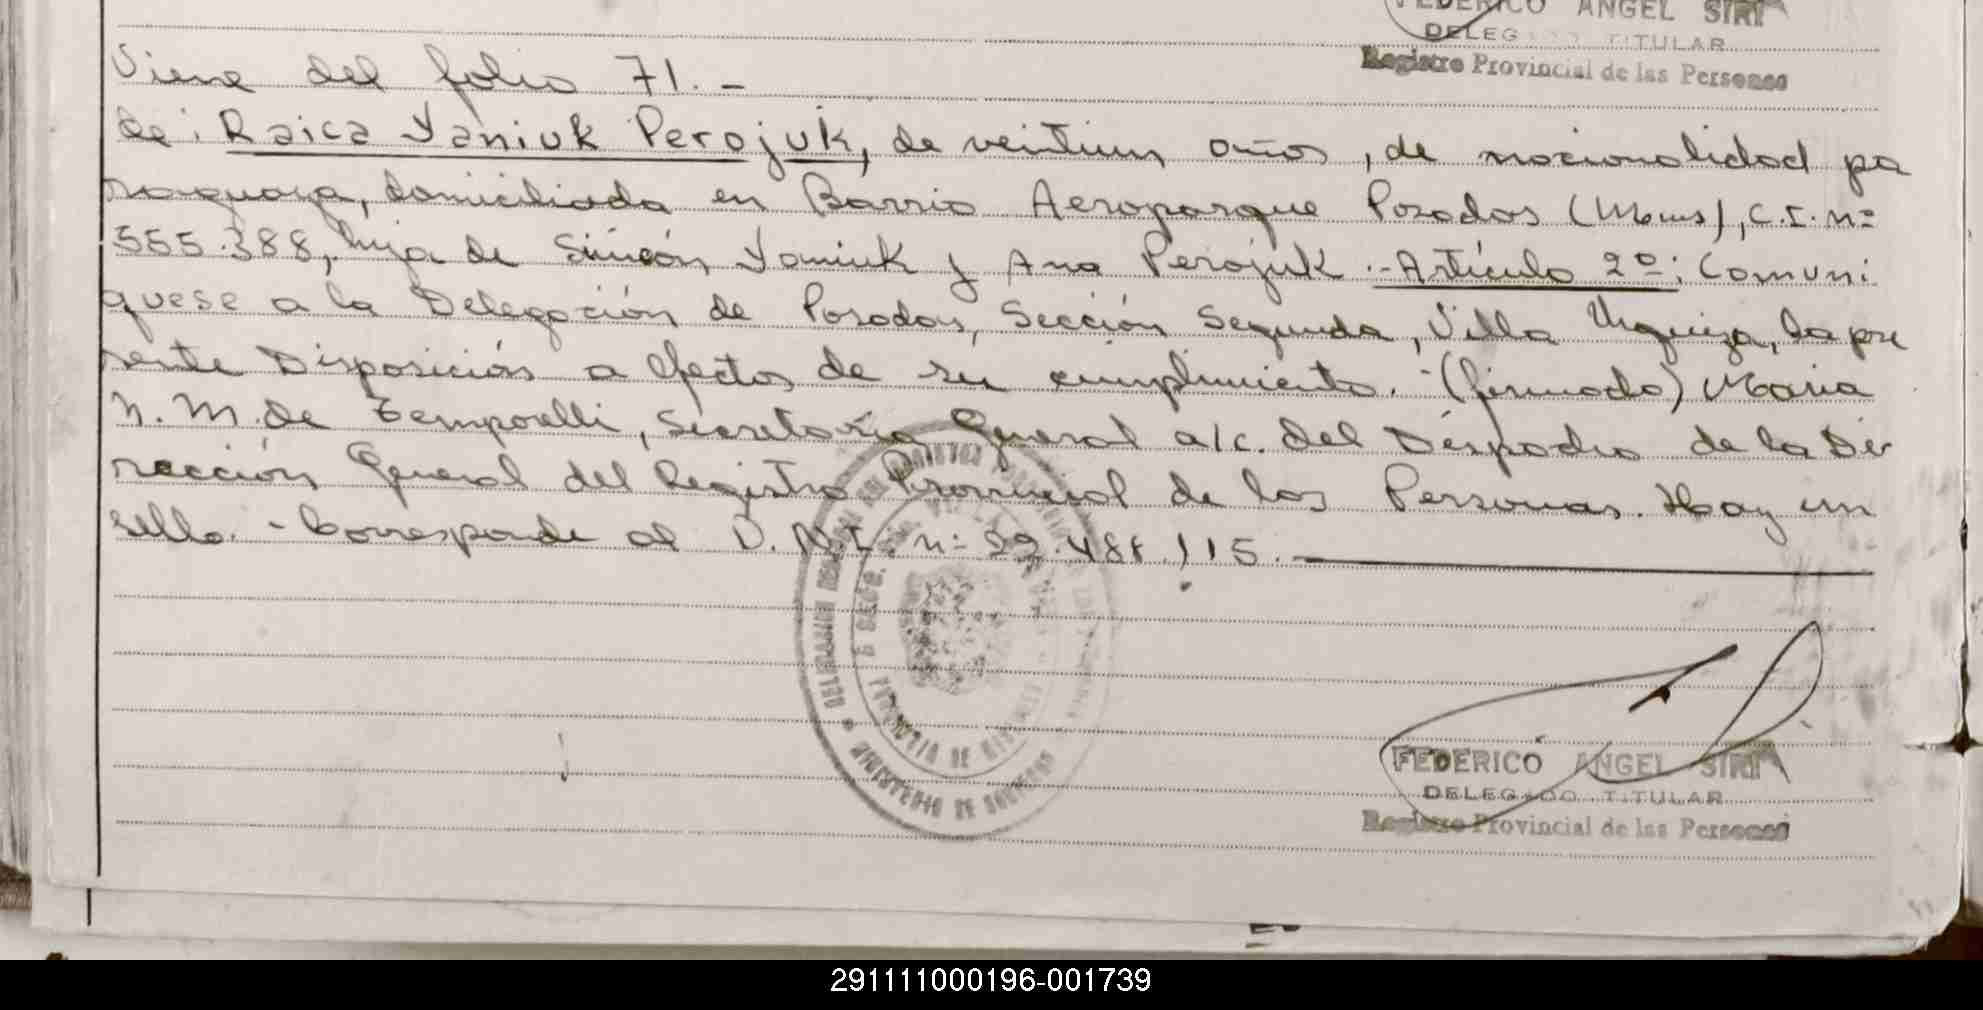 FEDERICO ANGEL SIRI
DELEGADO TITULAR
Registro Provincial de las Personas
Viene del folio 71.-
de: Raica Yaniuk Perojuk, de veintiun años, de nacionalidad pa
raguaya, domiciliada en Barrio Aeroparque Posadas (Mnes), C.I. nº
555.388, hija de Simeón Yaniuk y Ana Perojuk.- Artículo 2º: Comuni
quese a la Delegación de Posadas, Sección Segunda, Villa Urquiza, la pre
sente Disposición a efectos de su cumplimiento.- (firmado) Maria
N. M. de Temporelli, Secretaria General a/c. del Despacho de la Di
rección General del Registro Provincial de las Personas. Hay un
sello.- Corresponde al D.N.I. nº
MINISTERIO DE GOBIERNO
PROVINCIA DE MISIONES
FEDERICO ANGEL SIRI
DELEGADO TITULAR
Registro Provincial de las Personas
291111000196-001739